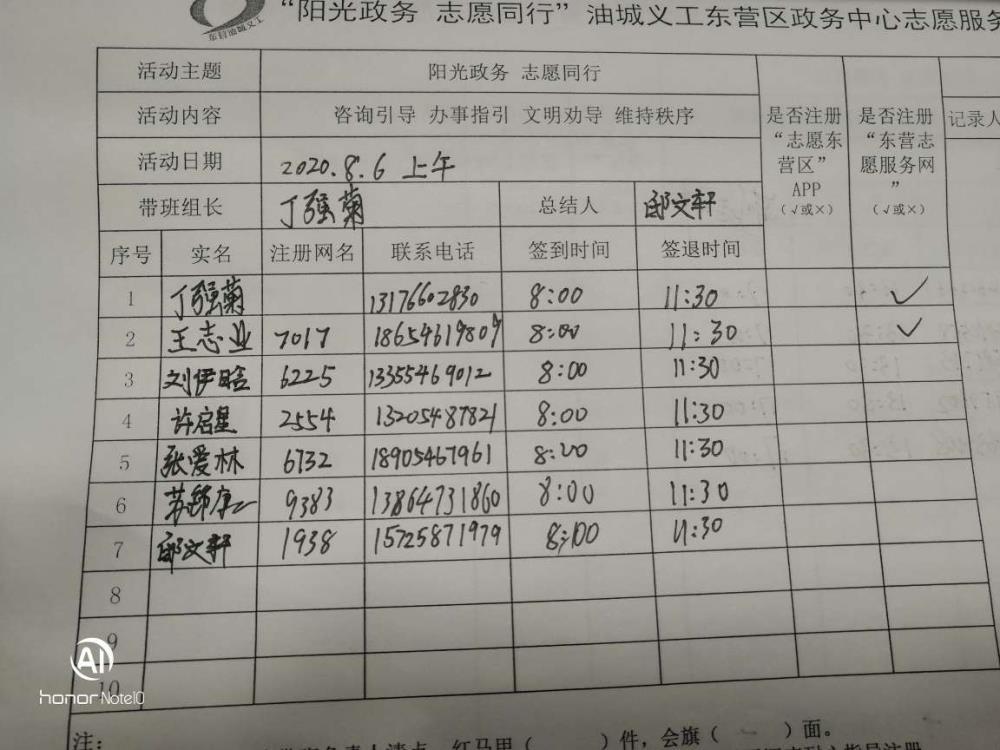 东营油城义工
“阳光政务 志愿同行”油城义工东营区政务中心志愿服务
活动主题 阳光政务 志愿同行
活动内容 咨询引导 办事指引 文明劝导 维持秩序
活动日期 2020.8.6 上午
带班组长 丁强菊 总结人 邱文轩
是否注册“志愿东营区”APP（√或×） 是否注册“东营志愿服务网”（√或×） 记录人
序号 实名 注册网名 联系电话 签到时间 签退时间
1 丁强菊 13176602830 8:00 11:30 ✓
2 王志业 7017 18654619807 8:00 11:30 ✓
3 刘伊晗 6225 13355469012 8:00 11:30
4 许启星 2554 13205487821 8:00 11:30
5 张爱林 6732 18905467961 8:00 11:30
6 9383 13864731860 8:00 11:30
7 邱文轩 1938 15725871979 8:00 11:30
8
9
10
注：
负责人清点，红马甲（ ）件，会旗（ ）面。
AI
honor Note10